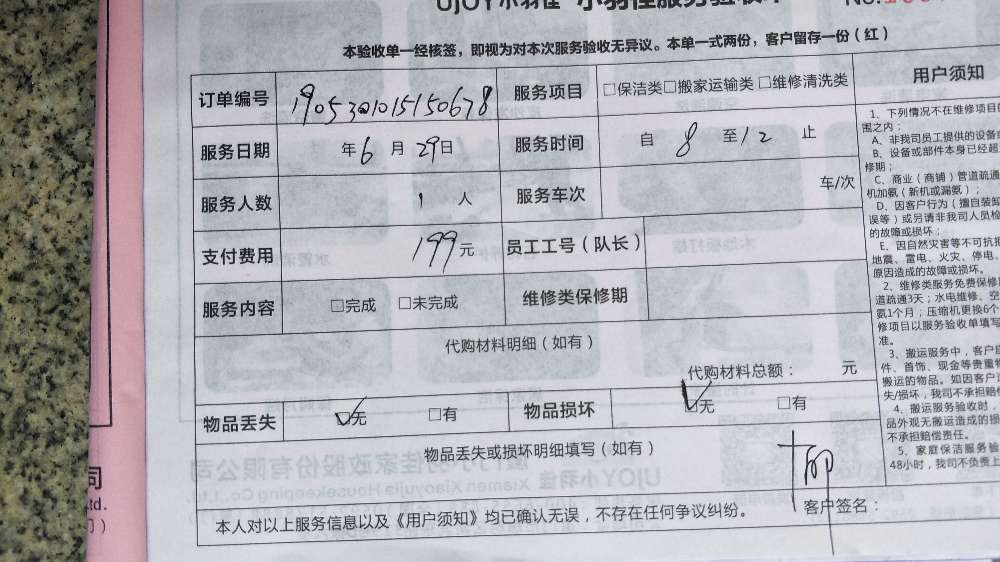 UJOY小羽佳 小羽佳服务验收单
No.
本验收单一经核签，即视为对本次服务验收无异议。本单一式两份，客户留存一份（红）
订单编号 1905301015150678 服务项目 □保洁类□搬家运输类□维修清洗类
服务日期 年6月29日 服务时间 自 8 至12 止
服务人数 1 人 服务车次 车/次
支付费用 199元 员工工号（队长）
服务内容 □完成 □未完成 维修类保修期
代购材料明细（如有）
代购材料总额： 元
物品丢失 ☑无 □有 物品损坏 ☑无 □有
物品丢失或损坏明细填写（如有）
本人对以上服务信息以及《用户须知》均已确认无误，不存在任何争议纠纷。 客户签名：
用户须知
1、下列情况不在维修项目
围之内：
A、非我司员工提供的设备
B、设备或部件本身已经超
修期；
C、商业（商铺）管道疏通
机加氨（新机或漏氨）；
D、因客户行为（擅自装卸
误等）或另请非我司人员
的故障或损坏；
E、因自然灾害等不可抗
地震、雷电、火灾、停电、
原因造成的故障或损坏。
2、维修类服务免费保修
道疏通3天；水电维修、空
氨1个月；压缩机更换6个
修项目以服务验收单填写
准。
3、搬运服务中，客户
件、首饰、现金等贵重
搬运的物品。如因客户
失/损坏，我司不承担赔
4、搬运服务验收时，
品外观无搬运造成的损
不承担赔偿责任。
5、家庭保洁服务验
48小时，我司不负责上
司
td.
）